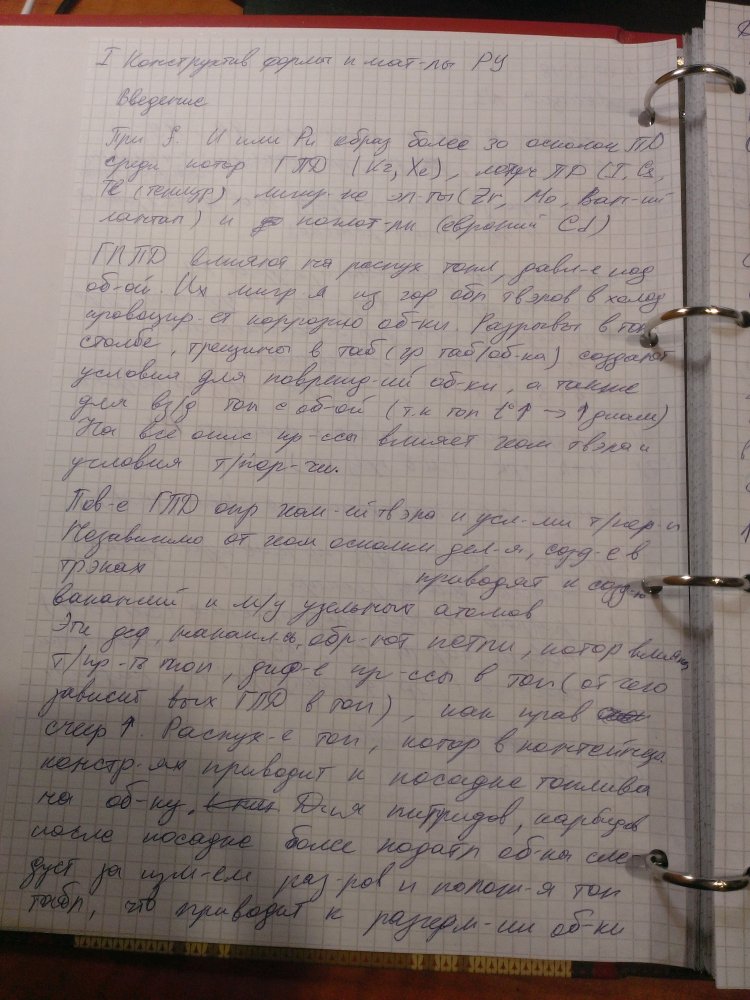 I Конструктив формы и мат-лы РУ
Введение
При f. U или Pu образ более 30 осколков ПД
среди котор ГПД (Kr, Xe), летуч ПД (I, Cs,
Te (теллур), лигир-ие эл-ты (Zr, Mo,
лантан) и поглот-ли (европий Cd)
ГПД влияют на распух топл, давл-е под
об-ой. Их мигр-я из гор обл твэлов в холод
провоцир-ет коррозию об-ки. Разрывы в топ
столбе, трещины в таб (гр таб/об-ка) создают
условия для поврежд-ий об-ки, а также
для вз/д топ с об-ой (т.к топ t°↑ → ↑ диам)
На все опис пр-ссы влияет геом твэла и
условия т/пер-чи.
Пов-е ГПД опр геом-ей твэла и усл-ми т/пер-и
Независимо от геом осколки дел-я, созд-е в
треках приводят к созд-ю
вакансий и м/у узельных атомов
Эти деф, накапл-сь, обр-ют петли, котор влияют
т/пр-ть топ, диф-е пр-ссы в топ (от чего
зависит вых ГПД в топ), как прав
скор ↑. Распух-е топ, котор в контейнер.
констр-ях приводит к посадке топлива
на об-ку. Для нитридов, карбидов
после посадке более податл об-ка сле
дует за изм-ем раз-ров и полож-я топ
табл, что приводит к разгерм-ии об-ки